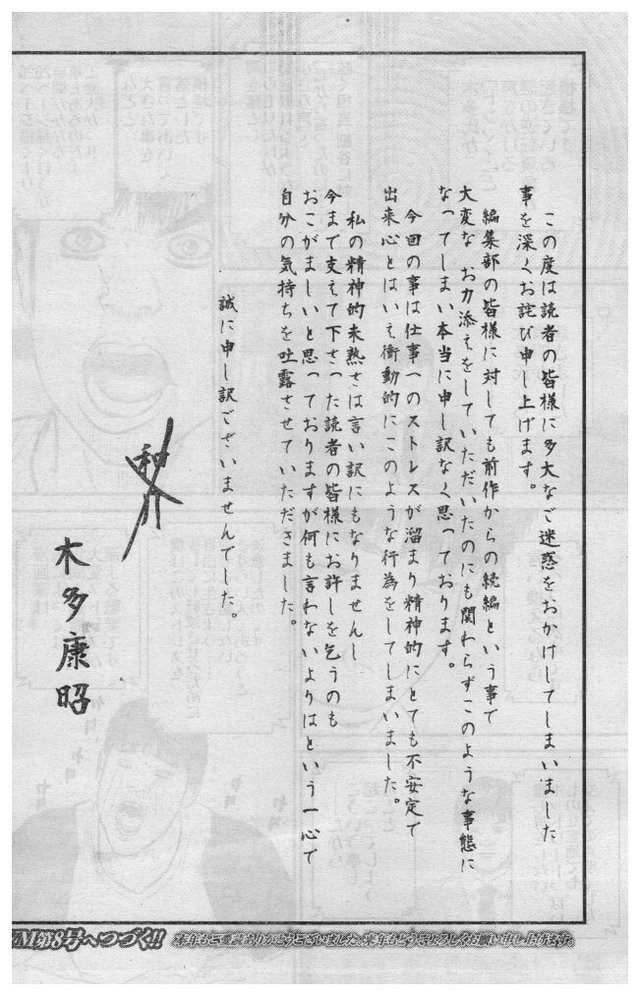 この度は読者の皆様に多大なご迷惑をおかけしてしまいました
事を深くお詫び申し上げます。
編集部の皆様に対しても前作からの続編という事で
大変な お力添えをしていただいたのにも関わらずこのような事態に
なってしまい本当に申し訳なく思っております。
今回の事は仕事へのストレスが溜まり精神的にとても不安定で
出来心とはいえ衝動的にこのような行為をしてしまいました。
私の精神的未熟さは言い訳にもなりませんし
今まで支えて下さった読者の皆様にお許しを乞うのも
おこがましいと思っておりますが何も言わないよりはという一心で
自分の気持ちを吐露させていただきました。
誠に申し訳ございませんでした。
木多康昭
号へつづく!!
本年もご愛読ありがとうございました。来年もどうぞよろしくお願い申し上げます。